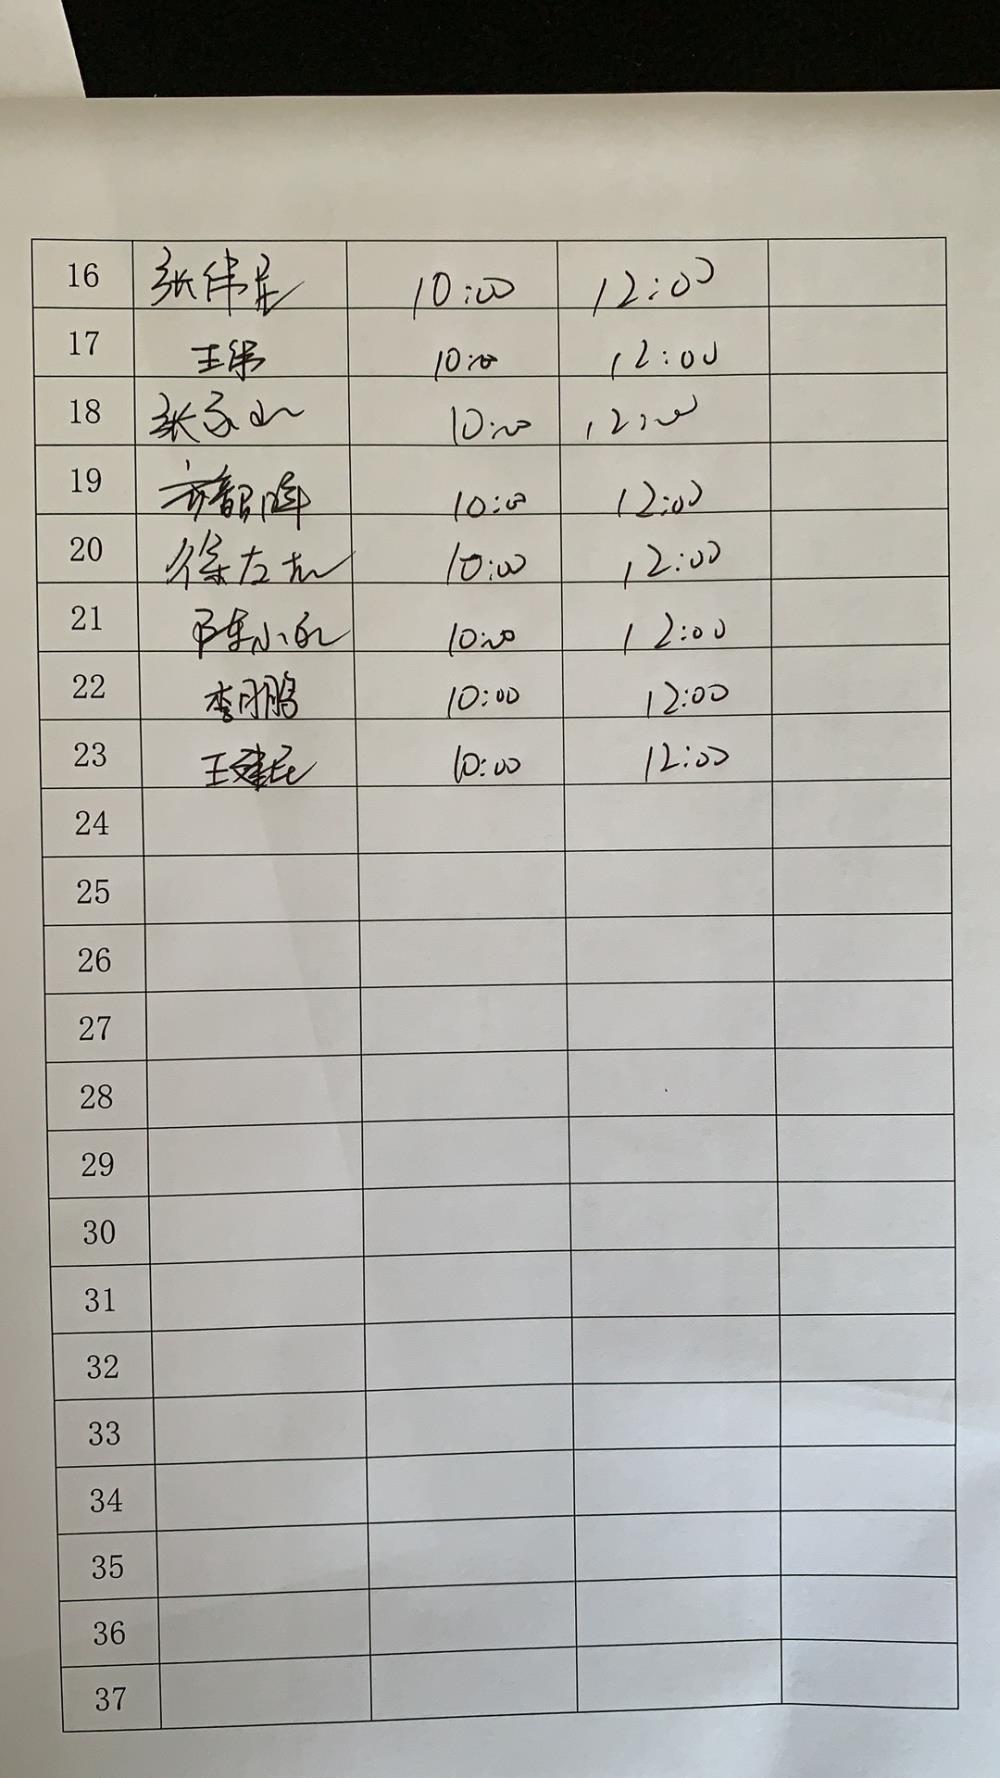 16 张伟 10:00 12:00
17 王伟 10:00 12:00
18 张 10:00 12:00
19 齐智晖 10:00 12:00
20 徐左 10:00 12:00
21 陈小 10:00 12:00
22 李月鹏 10:00 12:00
23 王建民 10:00 12:00
24
25
26
27
28
29
30
31
32
33
34
35
36
37